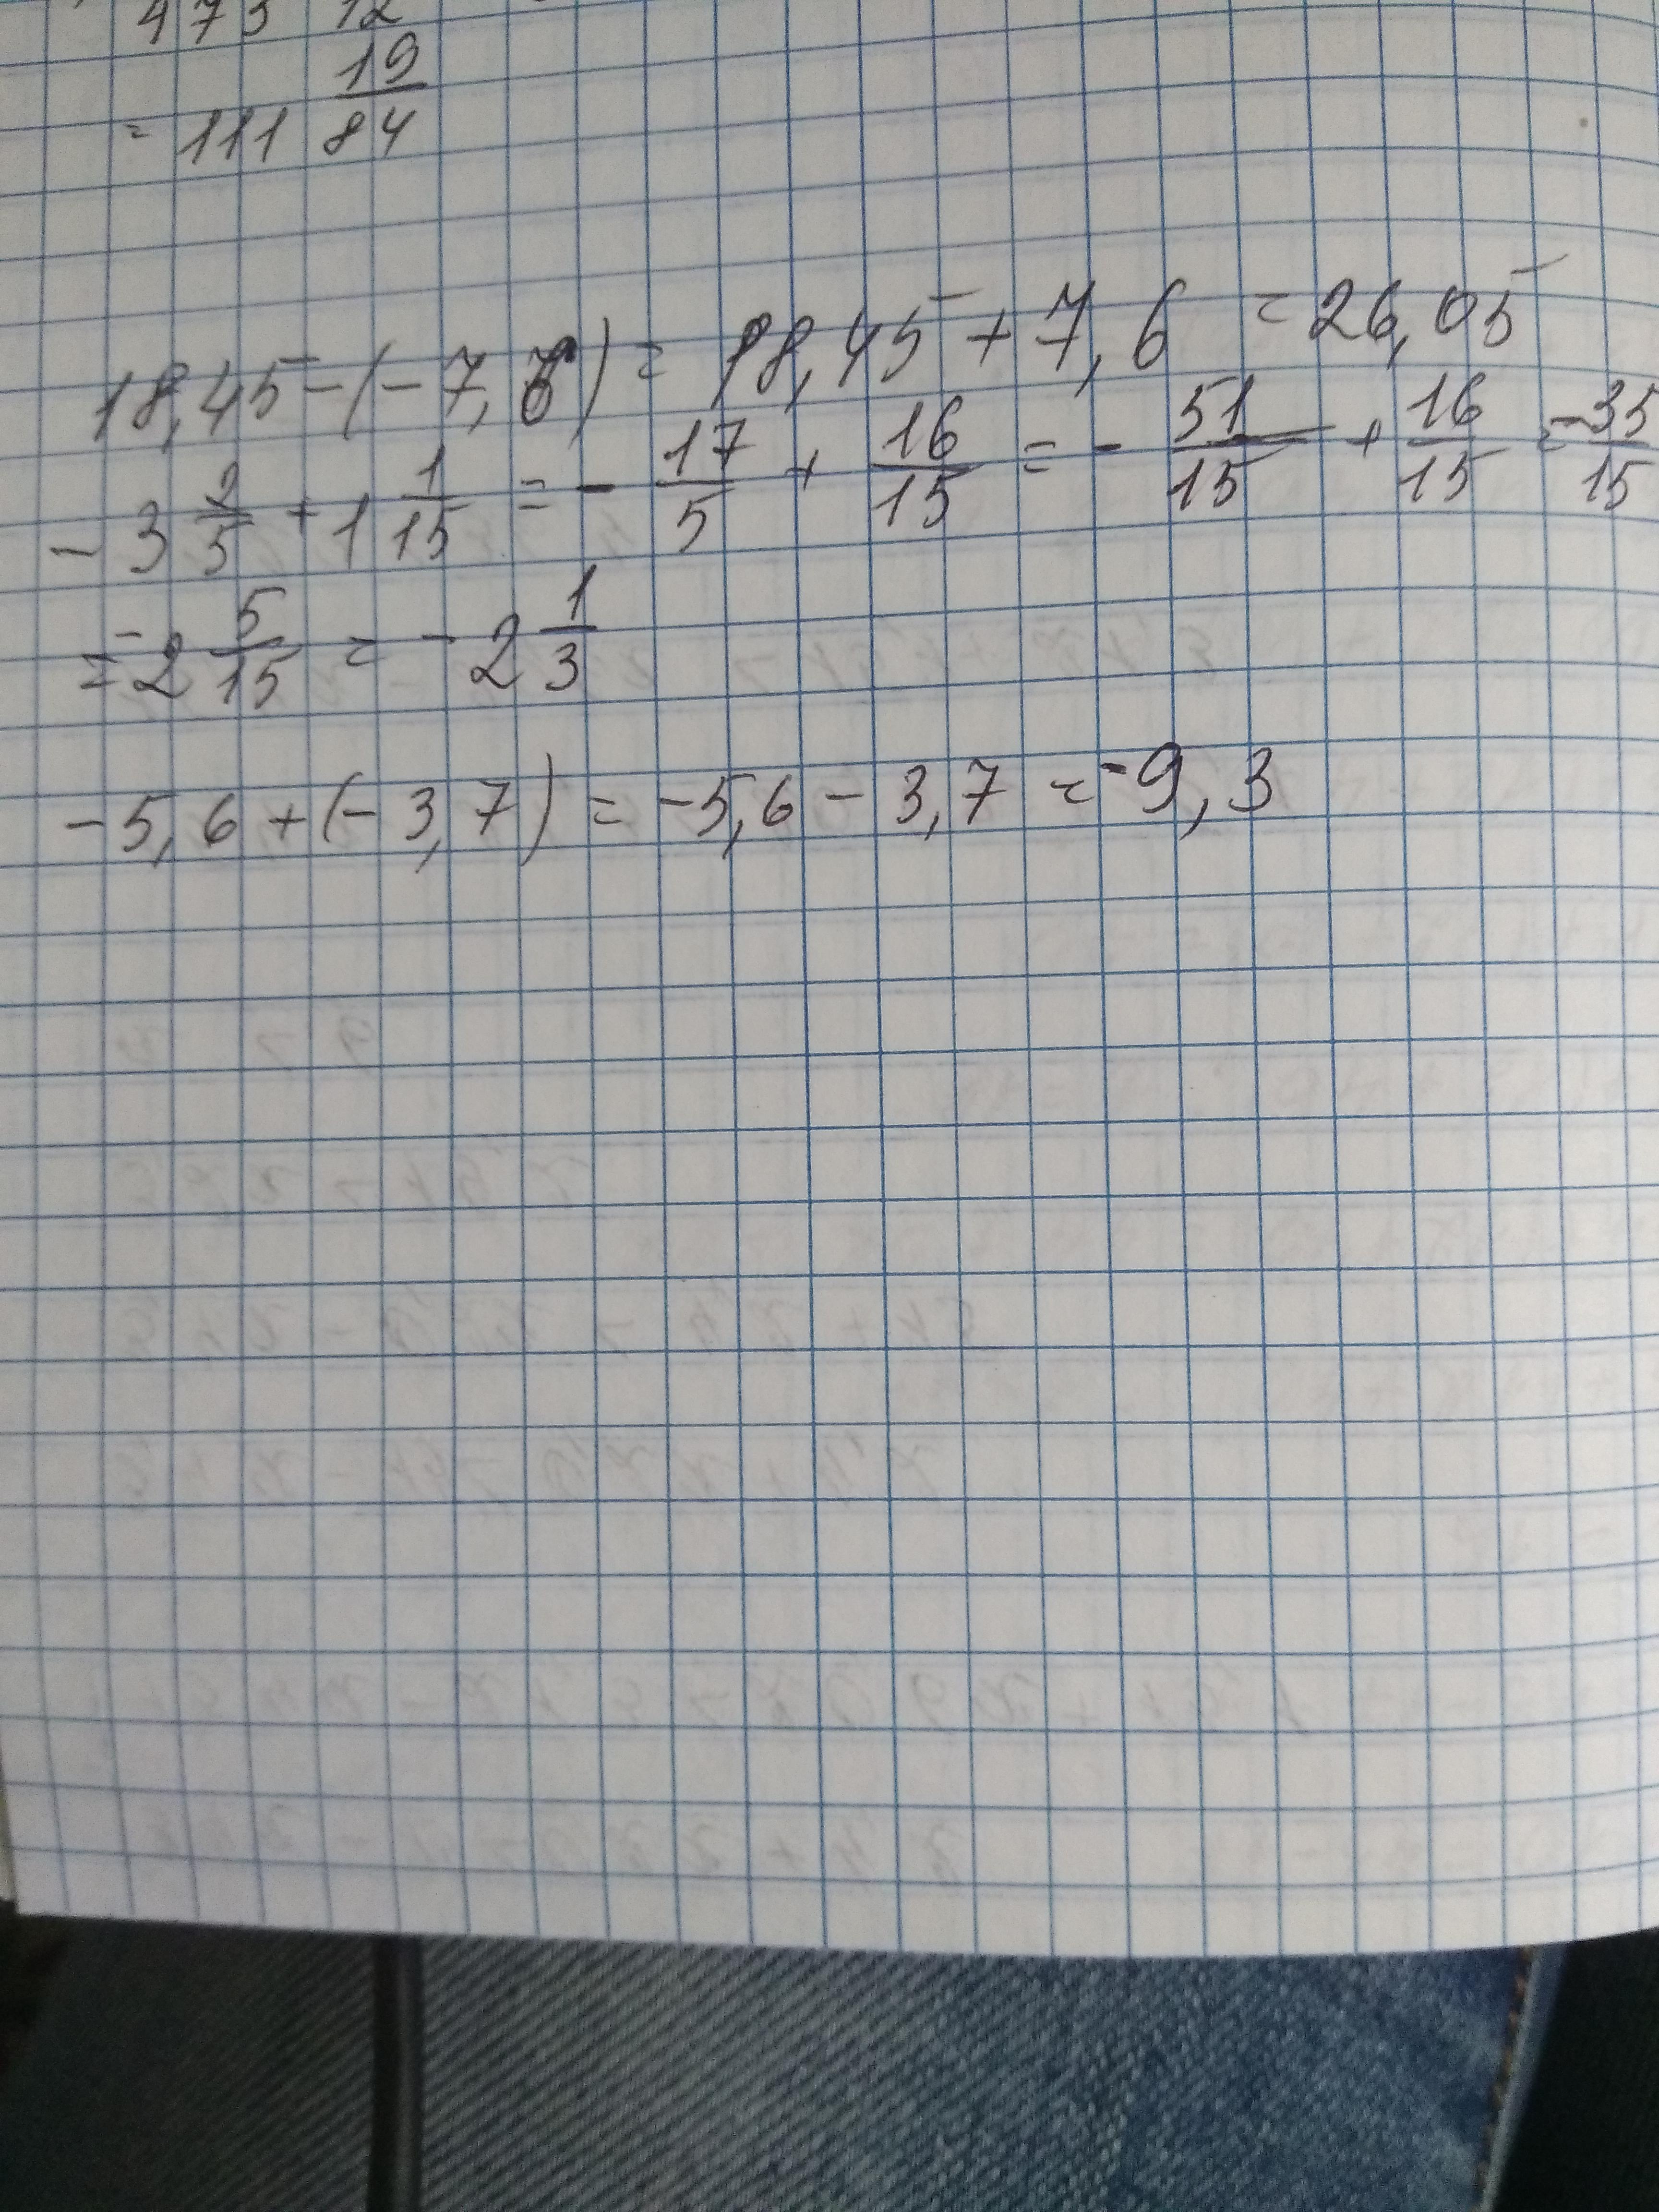 473 12
= 111 19/84
18,45 - (-7,6) = 18,45 + 7,6 = 26,05
- 3 2/5 + 1 1/15 = - 17/5 + 16/15 = - 51/15 + 16/15 = -35/15
= -2 5/15 = -2 1/3
-5,6 + (-3,7) = -5,6 - 3,7 = -9,3